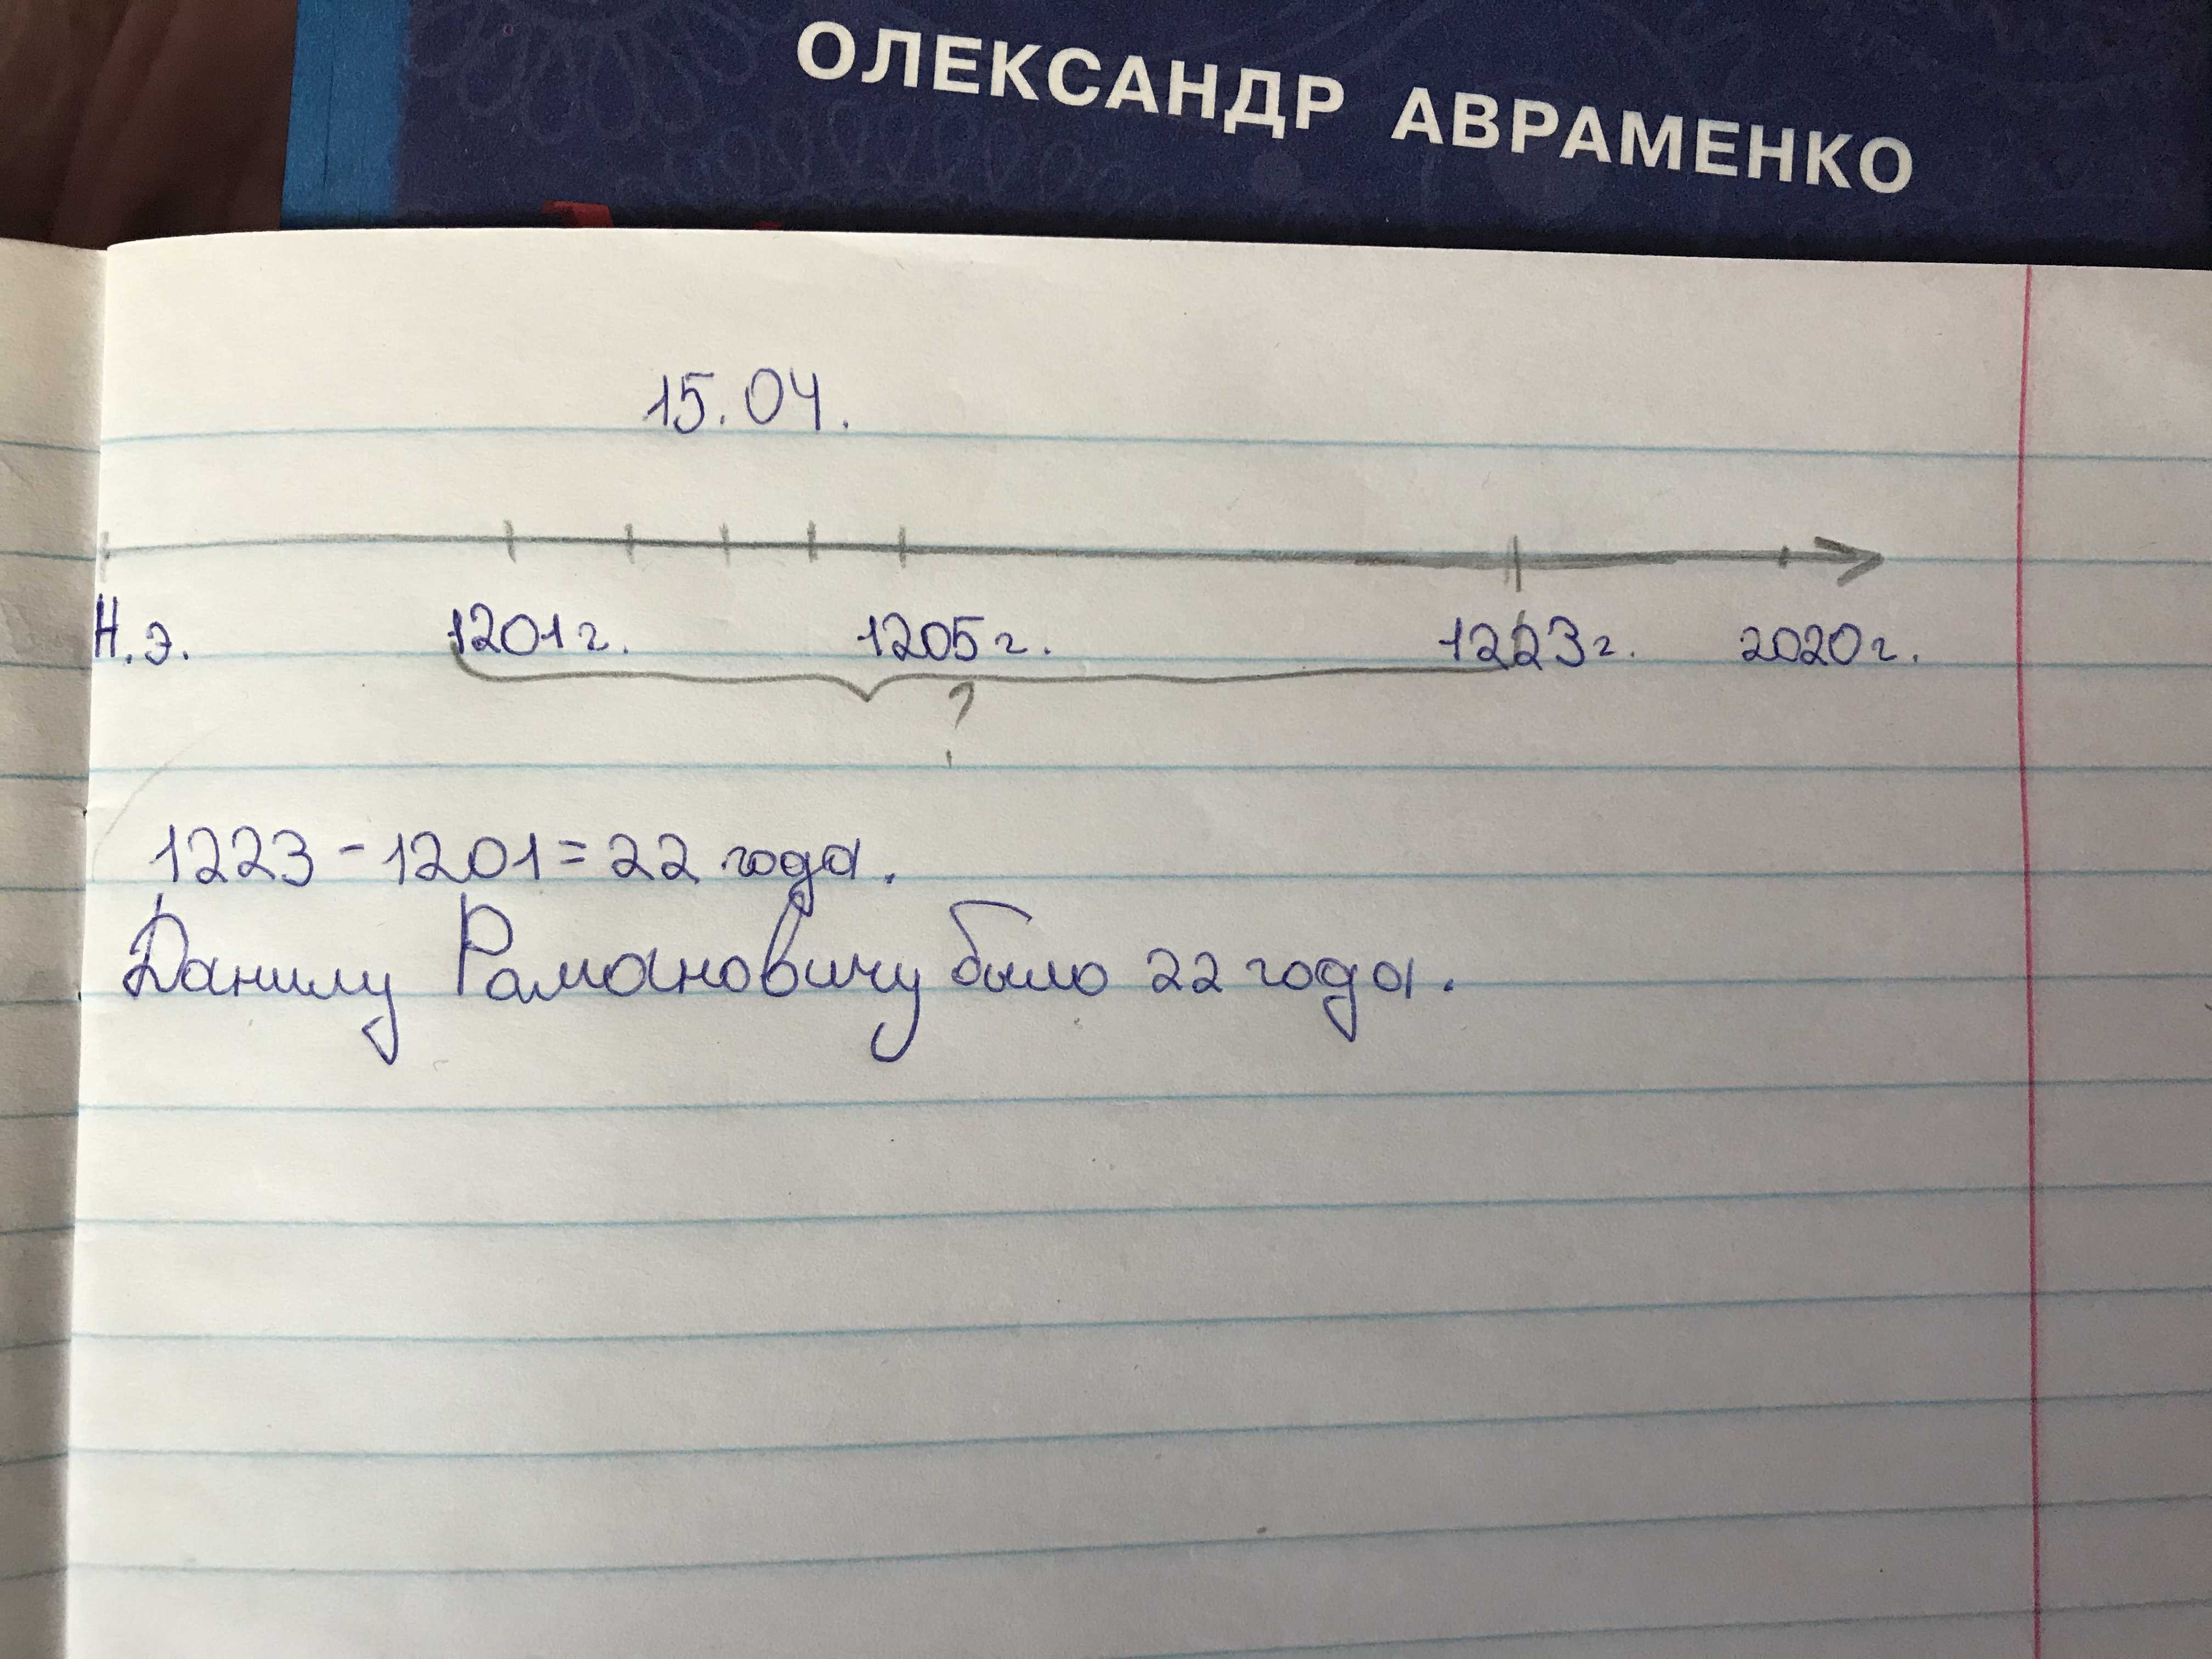 ОЛЕКСАНДР АВРАМЕНКО
15.04.
Н.э. 1201г. 1205г. 1223г. 2020г.
?
1223-1201=22 года.
Данилу Рамановичу было 22 года.